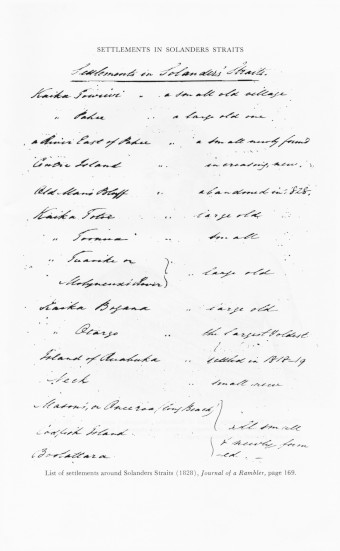 SETTLEMENTS IN SOLANDERS STRAITS
Settlements in Solanders' Straits.
Kaika " a small old village
" Pahee " a large old one
a River East of Pahee " a small newly found
Centre Island " increasing, new.
Old Mans Bluff " abandoned in 1828.
Kaika " large old
" small
" or
Molyneux's River } " large old
Kaika " large old
" Otargo " the largest & oldest
Island of Ruabuka " settled in 1818-19
Neck " small new
Masons, or (long Beach)
Codfish Island } all small & newly form
ed. -
List of settlements around Solanders Straits (1828), Journal of a Rambler, page 169.